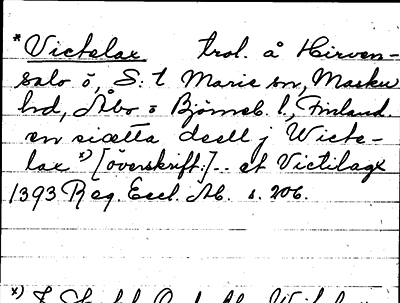 * Victelax trol. å Hirven-
salo ö, S:t Marie sn, Masku
hd, Åbo o Björneb. l., Finland.
en siætta deell j Wicte-
lax *) [överskrift:] -- et Victilagx
1393 Reg. Eccl. Ab. s. 206.
*)